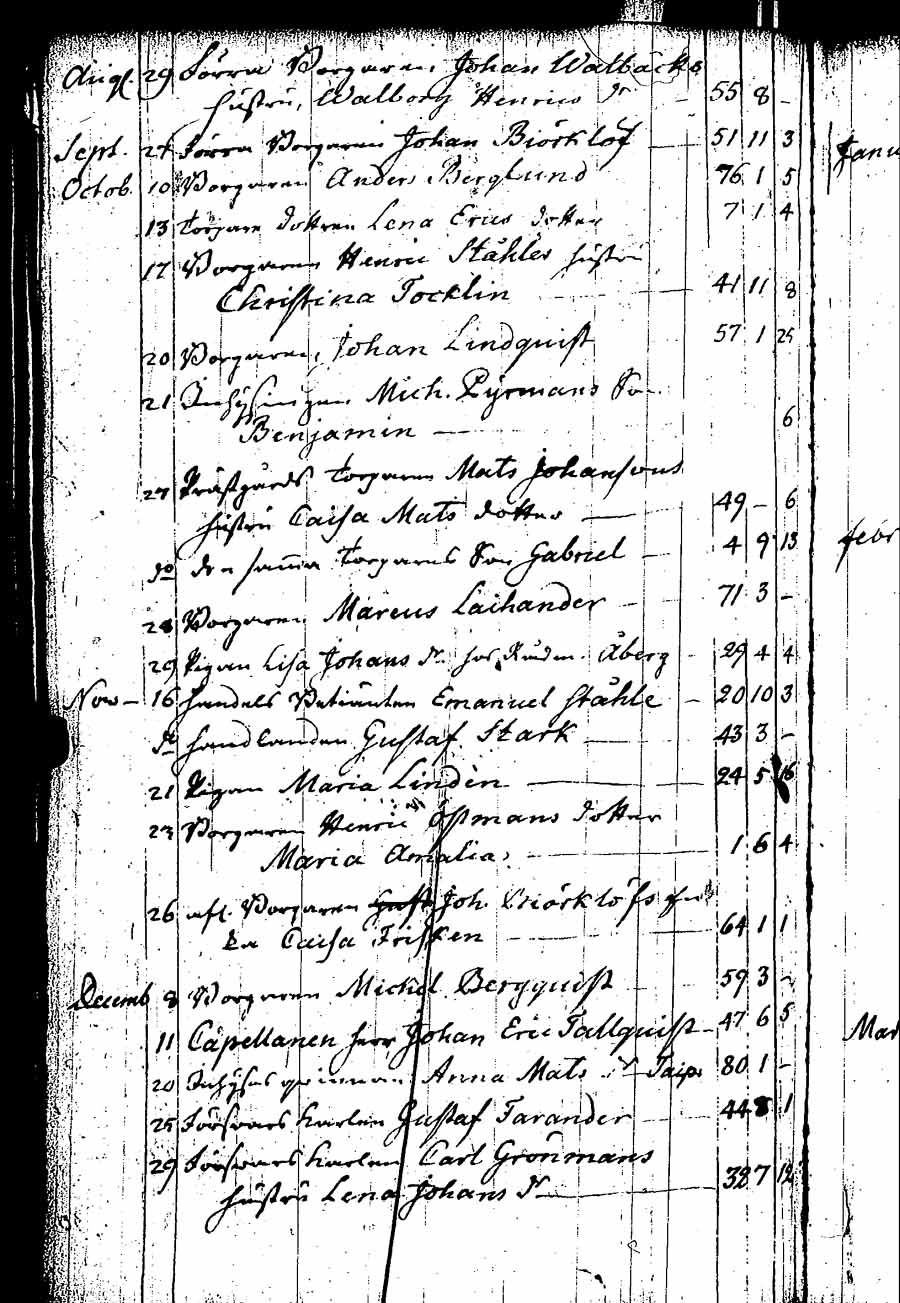 Aug. 29 Förra Borgaren Johan Walbäcks
hustru, Walborg Henrics dr - 55 8 -
Sept. 24 Förra Borgaren Johan Biörklöf 51 11 3
Octob. 10 Borgaren Anders Berglund 76 1 5
13 Torpare dottren Lena Erics dotter 7 1 4
17 Borgaren Henric Ståhles hustru
Christina Tocklin 41 11 8
20 Borgaren, Johan Lindquist 57 1 25
21 Inhysingen Mich. Pyrmans Son
Benjamin 6
27 Prästgårds Torparen Mats Johansons
hustru Caisa Mats dotter 49 - 6
do den samma Torparens Son Gabriel 4 9 13
28 Borgaren Marcus Laihander 71 3 -
29 Pigan Lisa Johans dr hos Åberg 29 4 4
Nov 16 Handels Betiänten Emanuel Ståhle 20 10 3
do Handlanden Gustaf Stark 43 3 -
21 Pigan Maria Lindén 24 5 16
23 Borgaren Henric Östmans dotter
Maria Amalia 1 6 4
26 afl. Borgaren Joh. Biörklöfs
Ea Caisa Frisken 64 1 1
Decemb 8 Borgaren Michel Bergquist 59 3 -
11 Capellanen Herr Johan Eric Tallquist 47 6 5
20 Inhyses qwinnan Anna Mats dr Taip 80 1 -
25 Försvars Karlen Gustaf Tarander 44 8 1
29 Försvars Karlen Carl Grönmans
hustru Lena Johans dr 38 7 12
Janu
febr
Mar